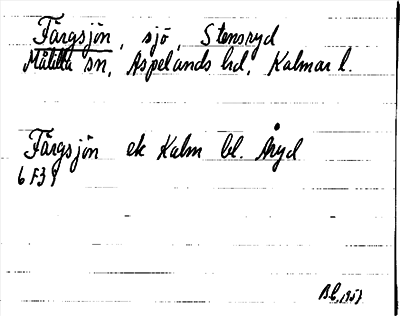 Färgsjön, sjö, Stensryd
Målilla sn, Aspelands hd, Kalmar l.
Färgsjön ek Kalm bl. Åryd
6 F39
1957